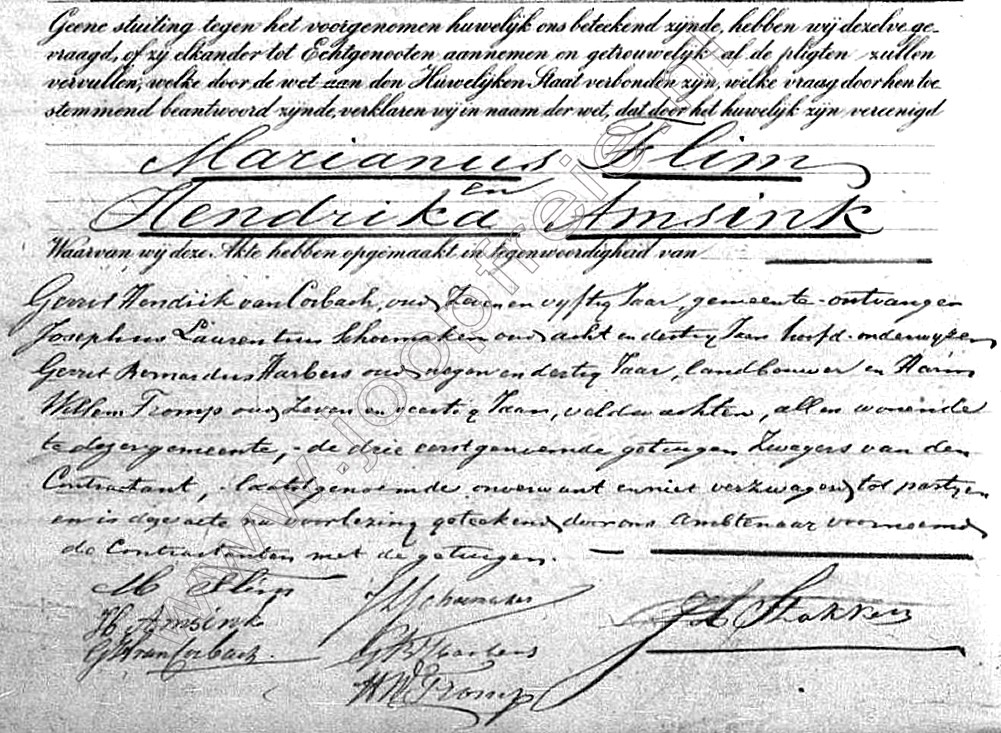 Geene stuiting tegen het voorgenomen huwelijk ons beteekend zijnde, hebben wij dezelve ge-
vraagd, of zij elkander tot Echtgenooten aannemen en getrouwelijk al de pligten zullen
vervullen, welke door de wet aan den Huwelijken-Staat verbonden zijn, welke vraag door hen toe
stemmend beantwoord zijnde, verklaren wij in naam der wet, dat door het huwelijk zijn vereenigd
Marianus Flim
en
Hendrika Amsink
Waarvan wij deze Akte hebben opgemaakt in tegenwoordigheid van
Gerrit Hendrik van Corbach, oud Zeven en vyftig Jaar, gemeente-ontvanger
Josephus Laurentius Schoemaker oud acht en dertig Jaar hoofd-onderwyzer,
Gerrit Bernardus Harbers oud negen en dertig Jaar, landbouwer en Harm
Willem Tromp oud Zeven en veertig Jaar, veldwachter, allen wonende
te dezer gemeente, - de drie eerstgenoemde getuigen Zwagers van den
Contractant, - laatstgenoemde onverwant en niet verzwagerd tot partyen
en is deze acte na voorlezing geteekend door ons Ambtenaar voornoemd
de Contractanten met de getuigen.
M Flim
H Amsink
GH van Corbach
JL Schoemaker
GB Harbers
HW Tromp
www.joopfreie.nl